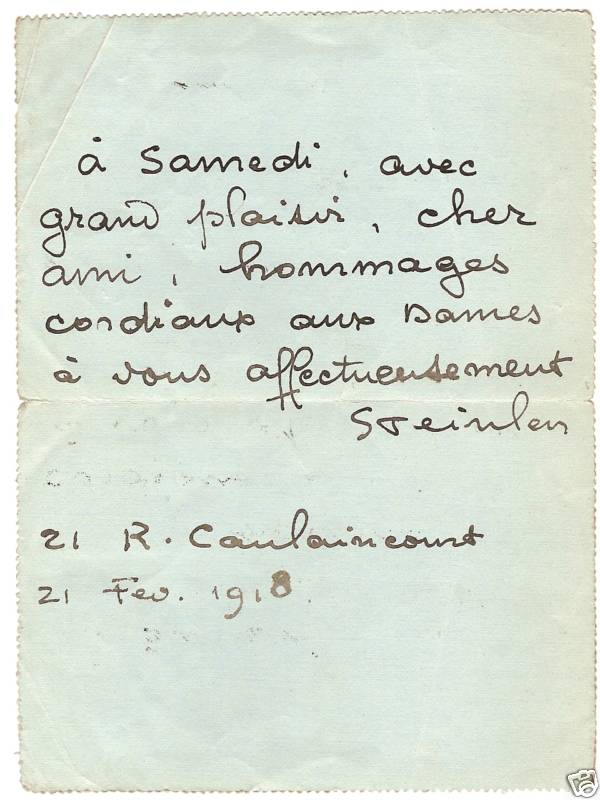 à Samedi, avec
grand plaisir, cher
ami, hommages
cordiaux aux Dames
à vous affectueusement
Steinlen
21 R. Caulaincourt
21 Fev. 1918